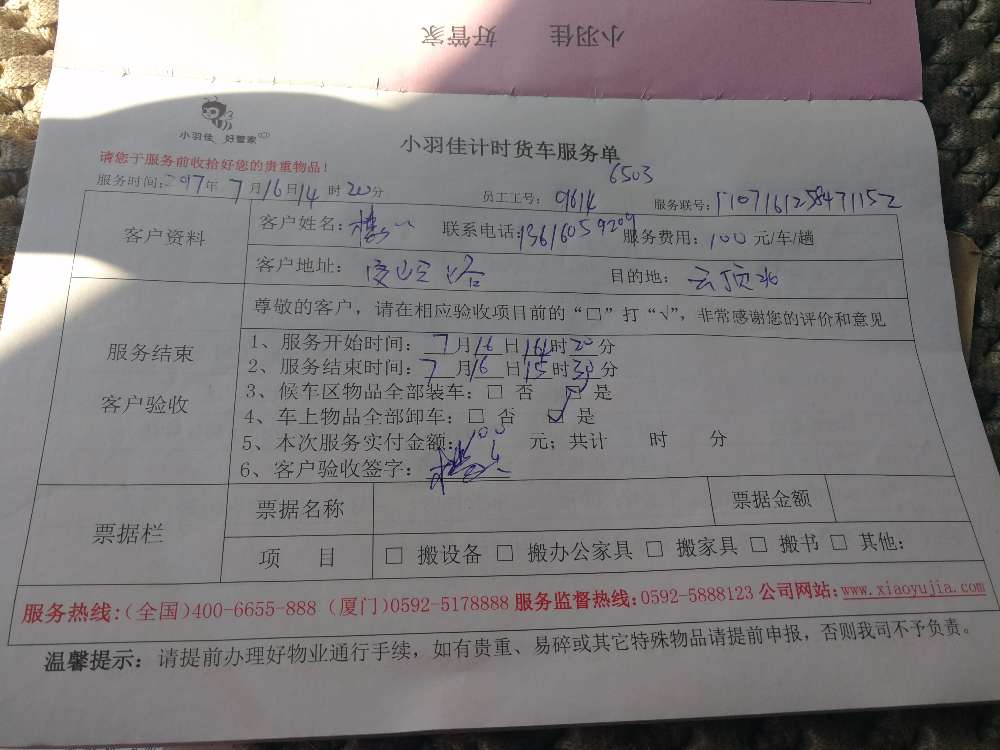 小羽佳 好管家
小羽佳 好管家
小羽佳计时货车服务单
请您于服务前收拾好您的贵重物品！
6503
服务时间: 年 7 月 16 日 14 时 20 分 员工工号: 0614 服务联号:
客户资料
客户姓名: 联系电话:13616059209 服务费用: 100 元/车/趟
客户地址: 目的地: 云顶北
服务结束
客户验收
尊敬的客户，请在相应验收项目前的“□”打“√”，非常感谢您的评价和意见
1、服务开始时间: 7 月 16 日 14 时 20 分
2、服务结束时间: 7 月 16 日 15 时 30 分
3、候车区物品全部装车: □ 否 ☑ 是
4、车上物品全部卸车: □ 否 ☑ 是
5、本次服务实付金额: 100 元; 共计 时 分
6、客户验收签字:
票据栏
票据名称 票据金额
项 目 □ 搬设备 □ 搬办公家具 □ 搬家具 □ 搬书 □ 其他:
服务热线:(全国)400-6655-888 (厦门)0592-5178888 服务监督热线:0592-5888123 公司网站:www.xiaoyujia.com
温馨提示: 请提前办理好物业通行手续，如有贵重、易碎或其它特殊物品请提前申报，否则我司不予负责。